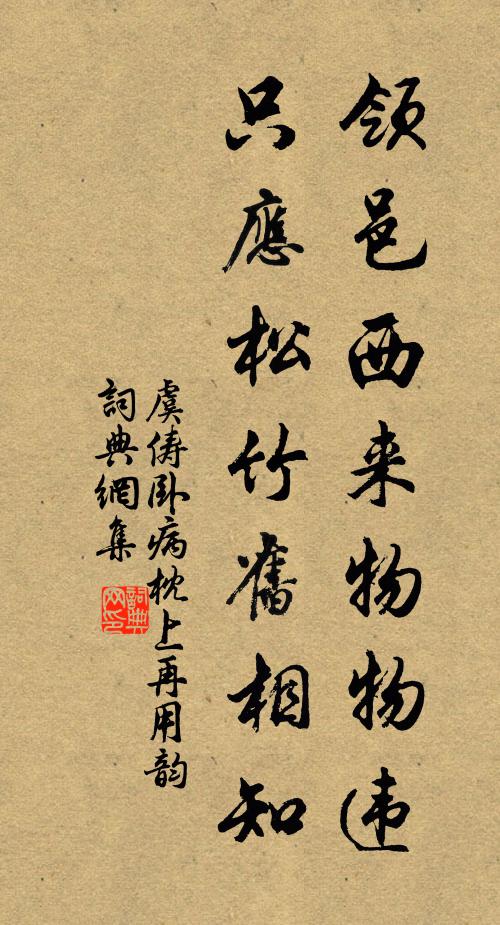 领邑西来物物违
只應松竹舊相知
虞儔卧病枕上再用韵
詞典網集
詞典网印